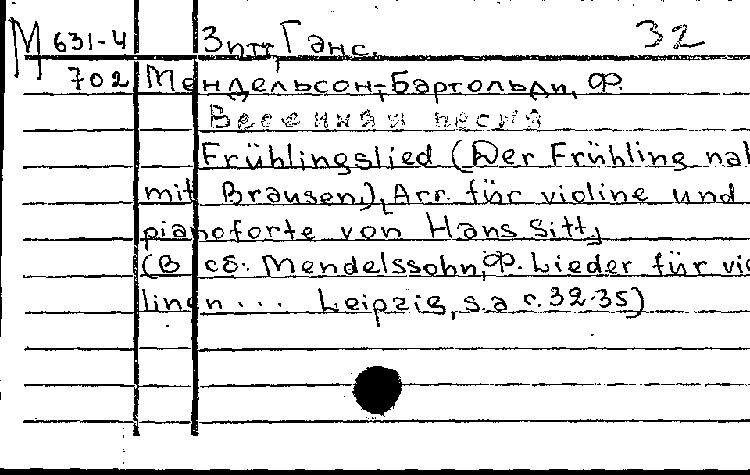 М 631-4 Зитт, Ганс. 32
702 Мендельсон-Бартольди, Ф.
Весенняя песня
Frühlingslied (Der Frühling nal
mit Brausen), Arr. für violine und
pianoforte von Hans Sitt,
(В сб: Mendelssohn, Ф. Lieder für vio
linen... Leipzig, s.a с. 32-35)